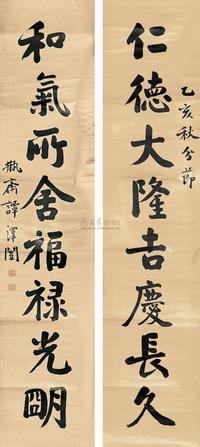 乙亥秋分節
仁德大隆吉慶長久
和氣所舍福禄光明
瓶齋譚澤闓